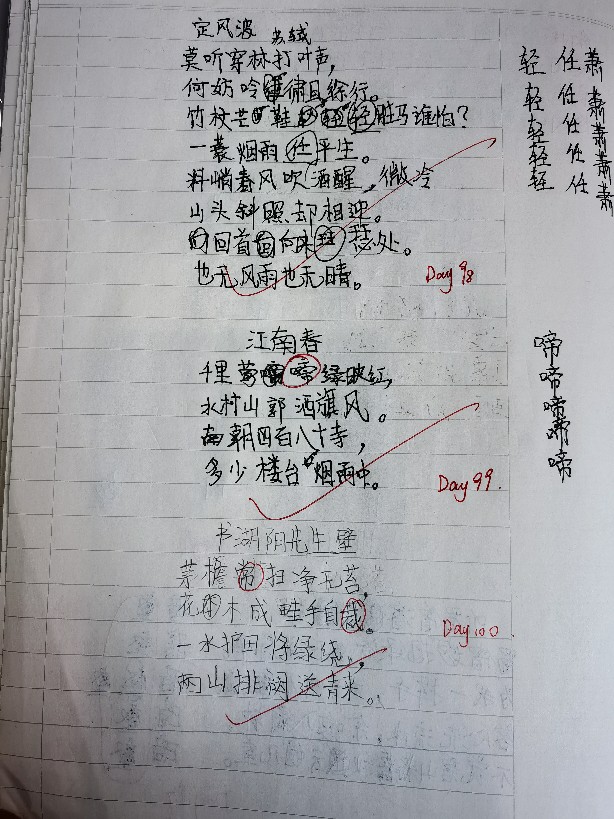 定风波 苏轼
莫听穿林打叶声,
何妨吟啸且徐行。
竹杖芒鞋轻胜马谁怕?
一蓑烟雨任平生。
料峭春风吹酒醒,微冷
山头斜照却相迎。
回首向来萧瑟处。
也无风雨也无晴。
Day 98
轻 任 萧
轻 任 萧
轻 任 萧
轻 任 萧
轻 任 萧
江南春
千里莺啼绿映红,
水村山郭酒旗风。
南朝四百八十寺,
多少楼台烟雨中。
Day 99.
啼
啼
啼
啼
啼
书湖阴先生壁
茅檐常扫净无苔,
花木成畦手自栽。
一水护田将绿绕,
两山排闼送青来。
Day 100